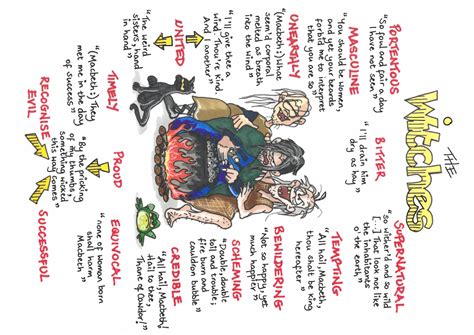 THE
Witches
PORTENTOUS
"So foul and fair a day
I have not seen"
BITTER
"I'll drain him
dry as hay"
SUPERNATURAL
"So wither'd and so wild
[...] That look not like
the inhabitants
o' the earth
MASCULINE
"You should be women,
and yet your beards
forbid me to interpret
that you are so"
UNEARTHLY
(Macbeth:) What
seem'd corporal
melted as breath
into the wind
UNITED
"I'll give thee a
wind. Thou'rt kind.
And I another"
"The weird
sisters, hand
in hand"
TEMPTING
"All hail, Macbeth,
thou shalt be king
hereafter"
BEWILDERING
"Not so happy, yet
much happier"
SCHEMING
"Double, double
toil and trouble;
fire burn and
cauldron bubble"
CREDIBLE
"All hail, Macbeth!
Hail to thee,
Thane of Cawdor!"
TIMELY
"(Macbeth:) They
met me in the day
of success"
PROUD
"By the pricking
of my thumbs,
something wicked
this way comes"
EQUIVOCAL
"none of woman born
shall harm
Macbeth"
RECOGNISE
EVIL
SUCCESSFUL